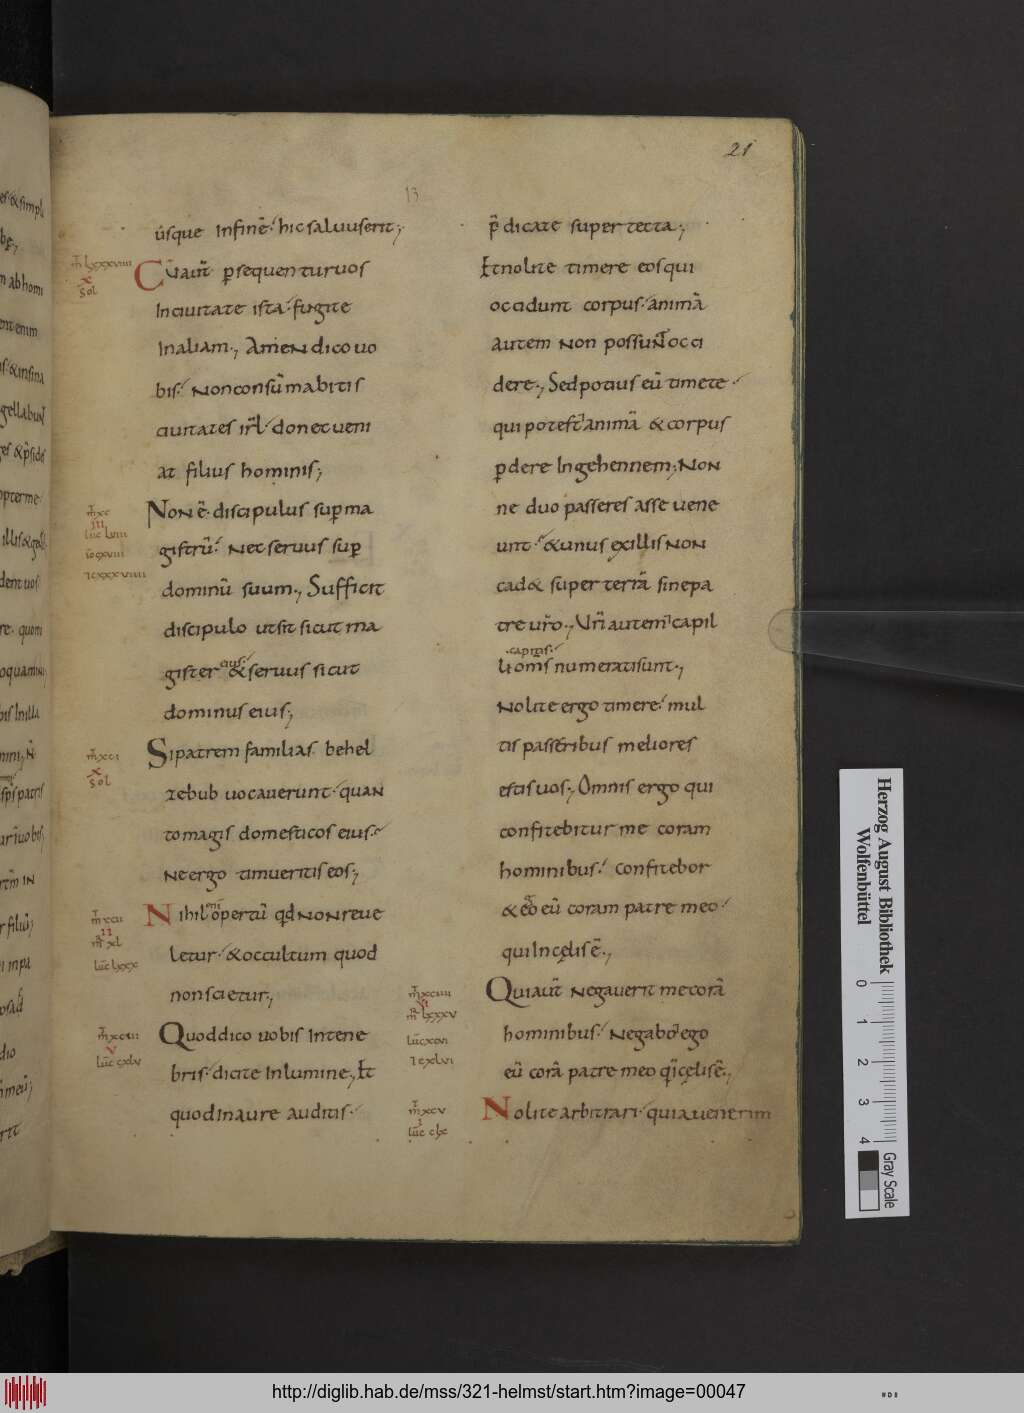 21
13
úsque Infinē hic saluuserit;
m̄ lxxxviiii
x
Sol
Cūaūt p̱sequenturuos
Inciuitate ista fugite
Inaliam; AmeN dicouo
bis NonconsūmabitiS
ciuitates isrl̄ donecueni
at filius hominis;
m̄xc
iii
luc lviii
io cxviii
NoN ē discipulus sup̱ma
gistrū Nec seruus sup̱
dominū suum; Sufficit
discipulo utsit sicut ma
gister eius &seruus sicut
dominus eius;
m̄xci
x
Sol
Sipatrem familias behel
zebub uocauerunt quaN
tomagis domesticos eius
Neergo timueritiseos;
m̄xcii
ii
m̄r xl
luc lxxx
Nihil opertū qđNoNreue
letur &occultum quod
nonscietur;
m̄xciii
v
luc cxlv
Quoddico uobis Intene
bris dicite Inlumine; Et
quodInaure auditis
p̄dicate super tecta;
Etnolite timere eosqui
occidunt corpus animā
autem NoN possuNt occi
dere; Sedpotius eū timete
quipotest animā &corpus
p̱dere Ingehennem; NoN
ne duo passeres asse uene
unt &unus exillisNoN
cad& super terrā sinepa
treuro; Uri autem capil
li capitis om̄s numeratisunt;
Nolite ergo timere mul
tis passeribus meliores
estisuos; Omnis ergo qui
confitebitur me coram
hominibus confitebor
&e͞o eū coram patre meo
quiIncęlisē;
m̄xciiii
vi
m̄r lxxxv
luc xcvi
Quiaūt Negauerit mecorā
hominibus Negabo &ego
eū corā patre meo quiIncęlisē;
m̄xcv
v
luc clx
Nolite arbitrari quia uenerim
Herzog August Bibliothek
Wolfenbüttel
0 1 2 3 4
Gray Scale
http://diglib.hab.de/mss/321-helmst/start.htm?image=00047